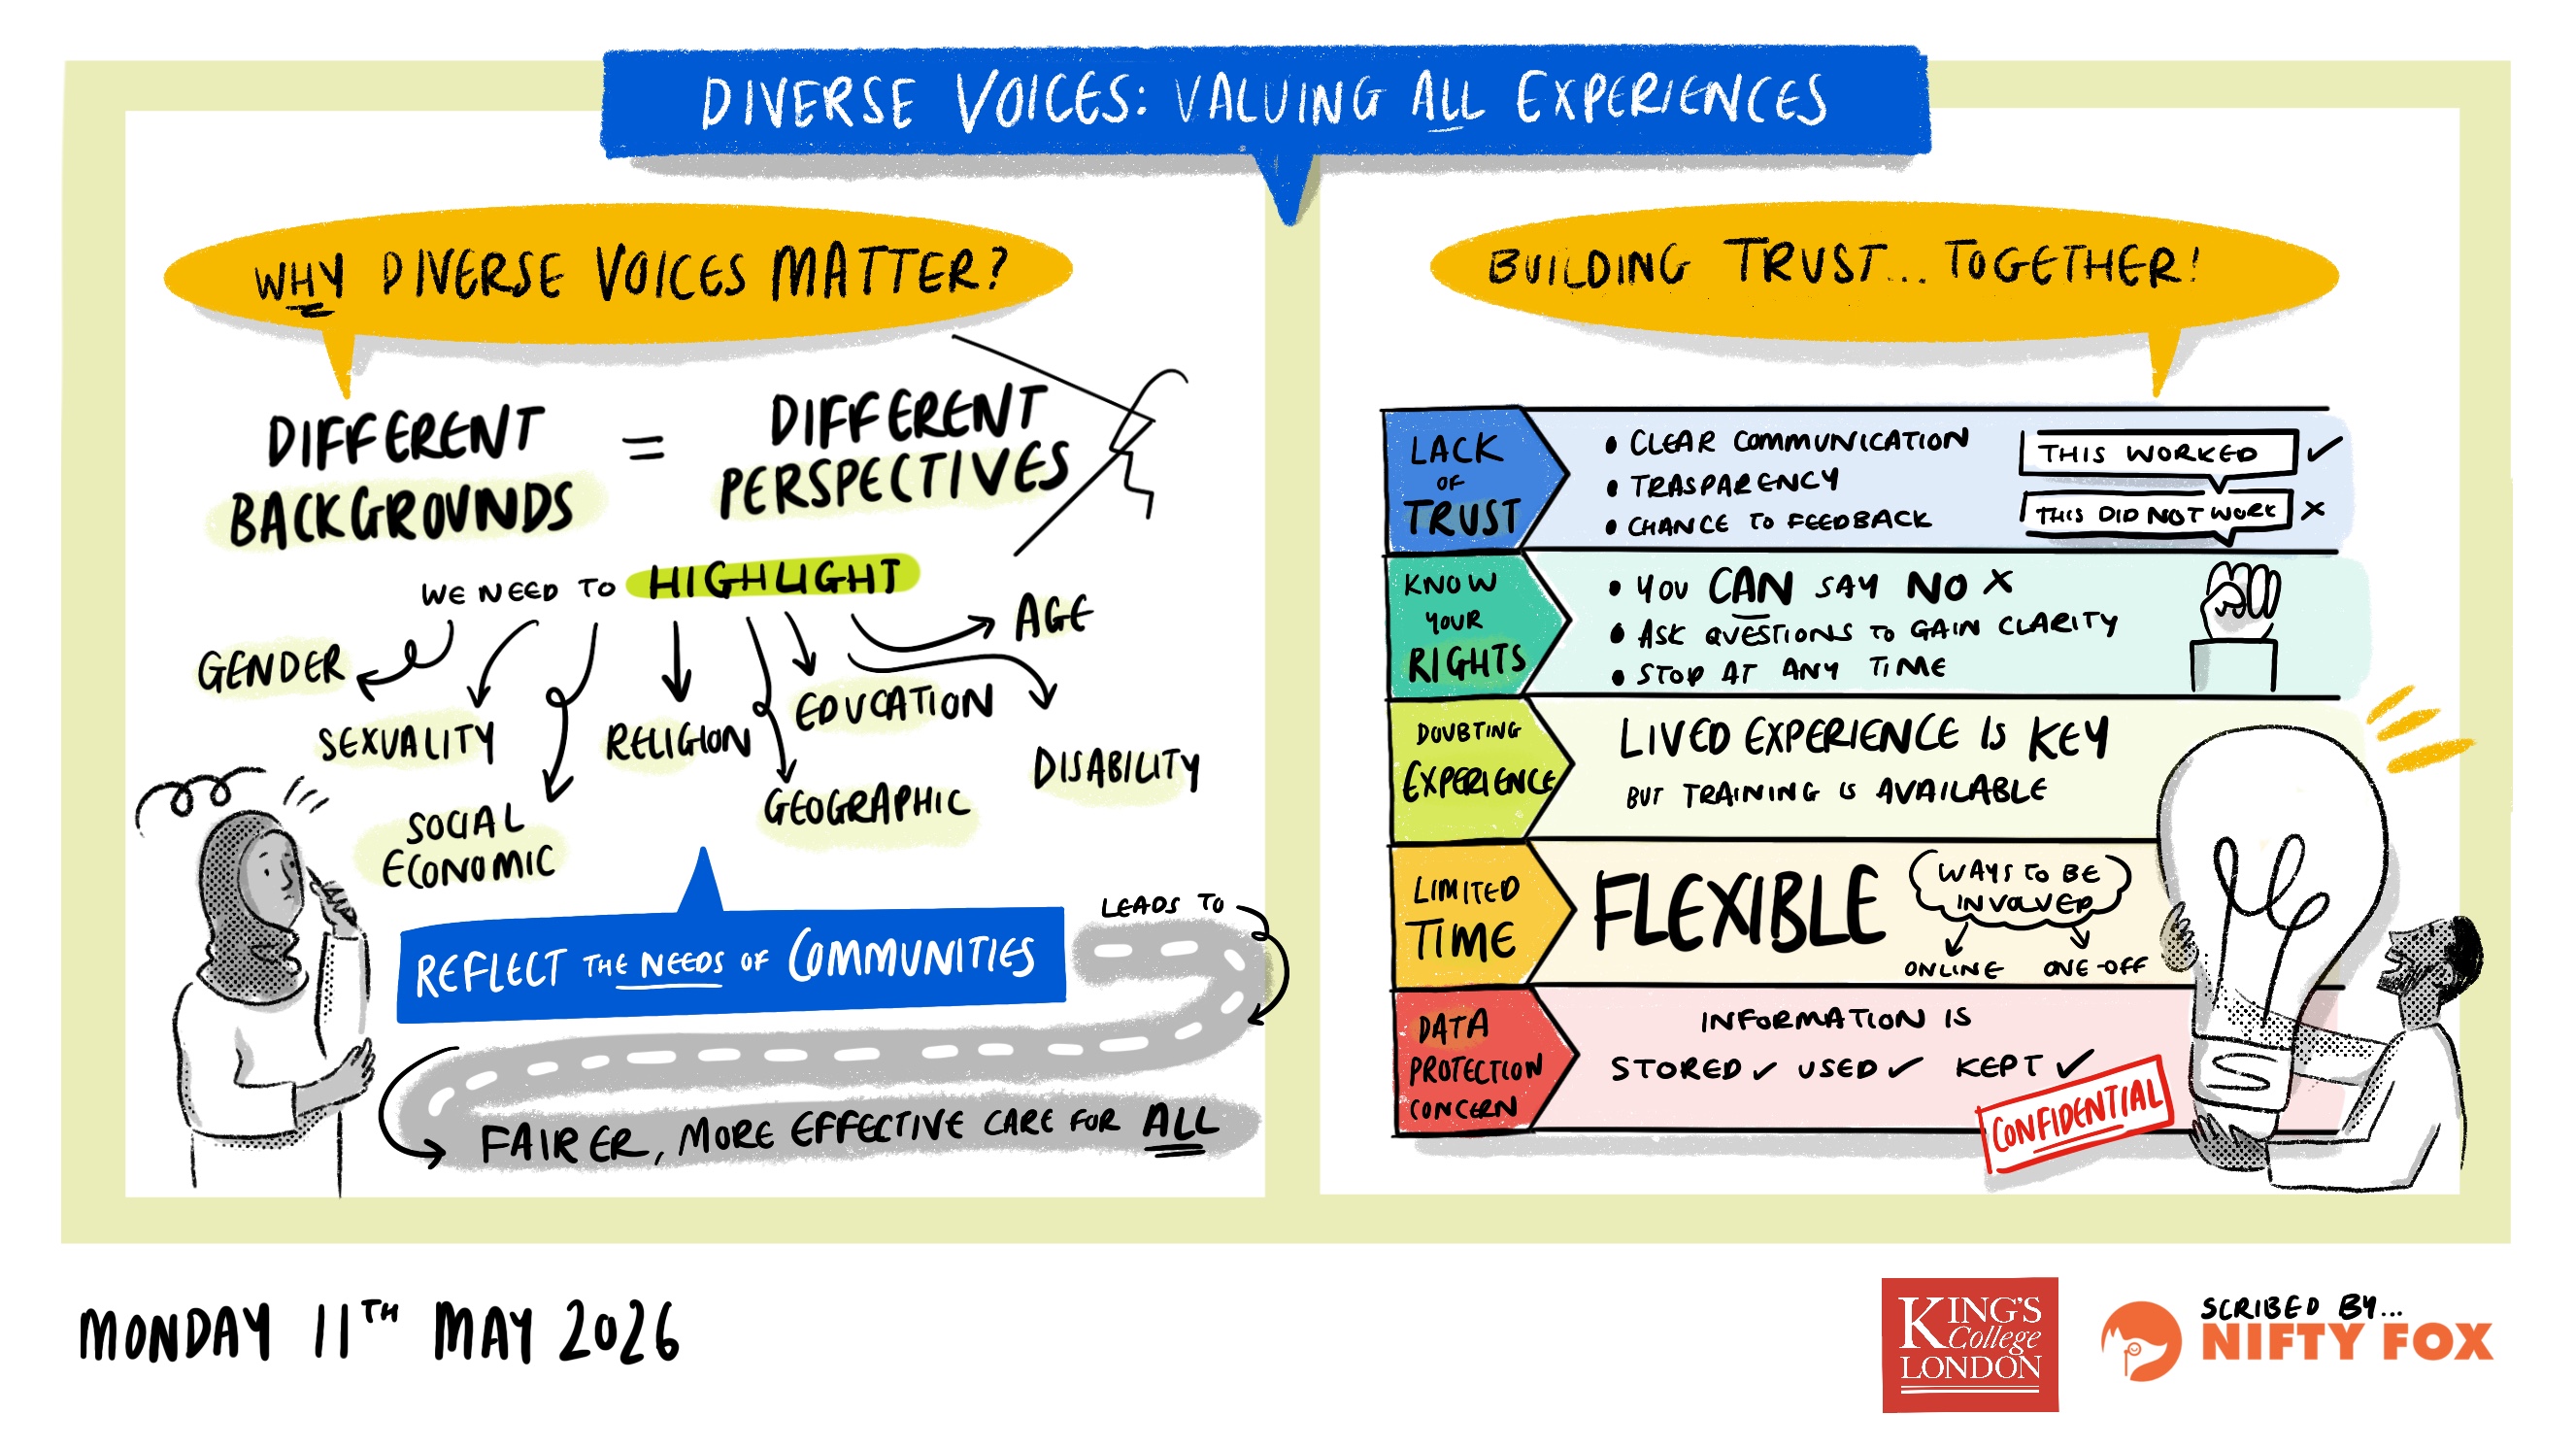 DIVERSE VOICES: VALUING ALL EXPERIENCES
WHY DIVERSE VOICES MATTER?
DIFFERENT
BACKGROUNDS
=
DIFFERENT
PERSPECTIVES
WE NEED TO HIGHLIGHT
GENDER
SEXUALITY
SOCIAL
ECONOMIC
RELIGION
GEOGRAPHIC
EDUCATION
AGE
DISABILITY
REFLECT THE NEEDS OF COMMUNITIES
LEADS TO
FAIRER, MORE EFFECTIVE CARE FOR ALL
BUILDING TRUST... TOGETHER!
LACK
OF
TRUST
• CLEAR COMMUNICATION
• TRASPARENCY
• CHANCE TO FEEDBACK
THIS WORKED ✓
THIS DID NOT WORK X
KNOW
YOUR
RIGHTS
• YOU CAN SAY NO X
• ASK QUESTIONS TO GAIN CLARITY
• STOP AT ANY TIME
DOUBTING
EXPERIENCE
LIVED EXPERIENCE IS KEY
BUT TRAINING IS AVAILABLE
LIMITED
TIME
FLEXIBLE
WAYS TO BE
INVOLVED
ONLINE ONE-OFF
DATA
PROTECTION
CONCERN
INFORMATION IS
STORED ✓ USED ✓ KEPT ✓
CONFIDENTIAL
MONDAY 11TH MAY 2026
KING'S
College
LONDON
SCRIBED BY...
NIFTY FOX